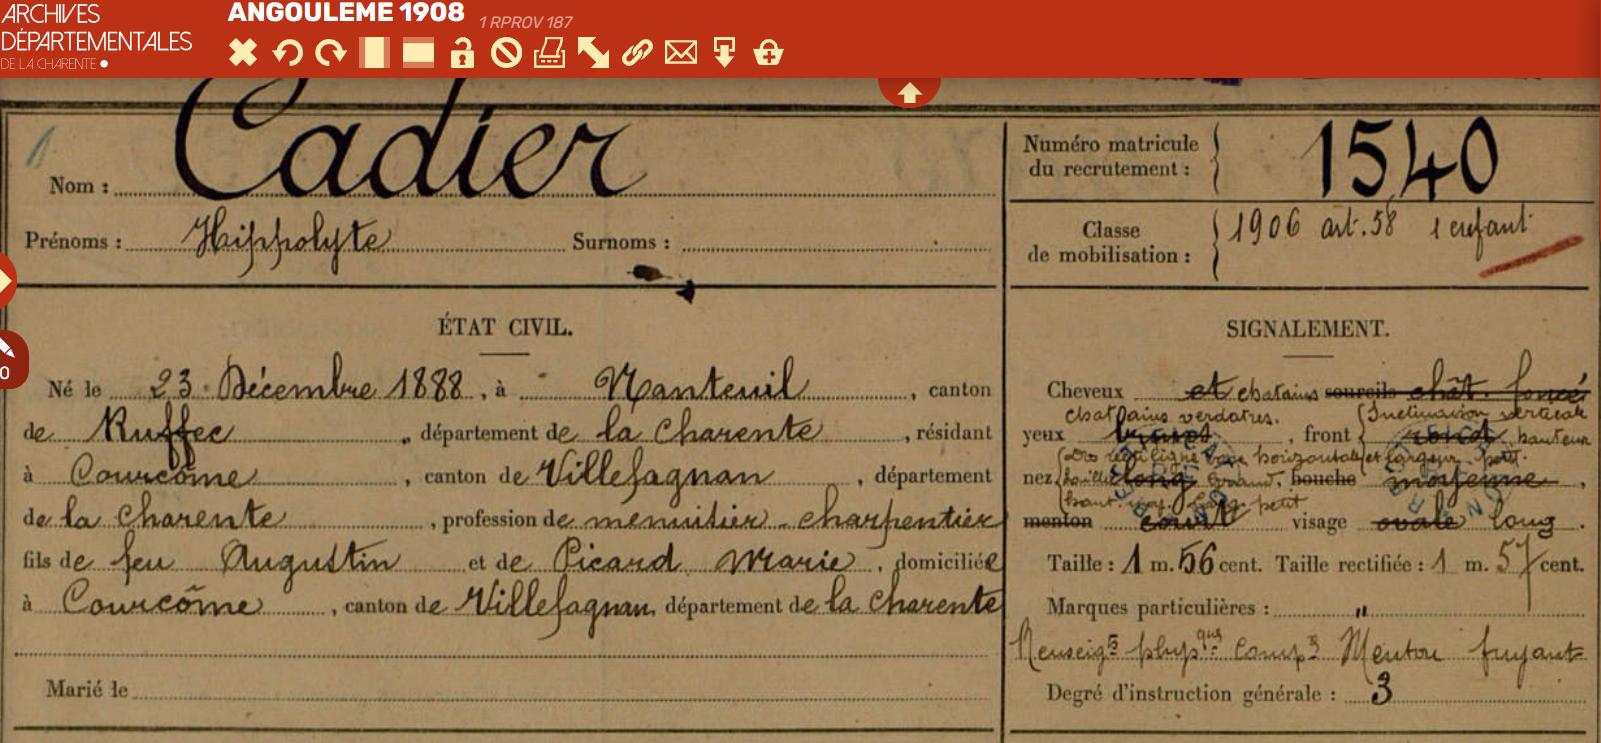 ARCHIVES
DÉPARTEMENTALES
DE LA CHARENTE
ANGOULEME 1908
1 RPROV 187
Nom : Cadier
Numéro matricule du recrutement : 1540
Prénoms : Hippolyte Surnoms :
Classe de mobilisation : 1906 art. 58 1 enfant
ÉTAT CIVIL.
Né le 23 Décembre 1888, à Nanteuil, canton
de Ruffec, département de la Charente, résidant
à Courcôme, canton de Villefagnan, département
de la Charente, profession de menuisier - charpentier
fils de feu Augustin et de Picard Marie, domiciliée
à Courcôme, canton de Villefagnan, département de la Charente
Marié le
SIGNALEMENT.
Cheveux et chatains sourcils chât. foncé
chatains verdatres. Inclinaison verticale
yeux, front rond hauteur
Dos rectiligne Base horizontale et largeur
nez long bouche moyenne,
petit
menton court visage ovale long.
Taille : 1 m. 56 cent. Taille rectifiée : 1 m. 57 cent.
Marques particulières : "
Renseigts physques compts Menton fuyant
Degré d'instruction générale : 3
0